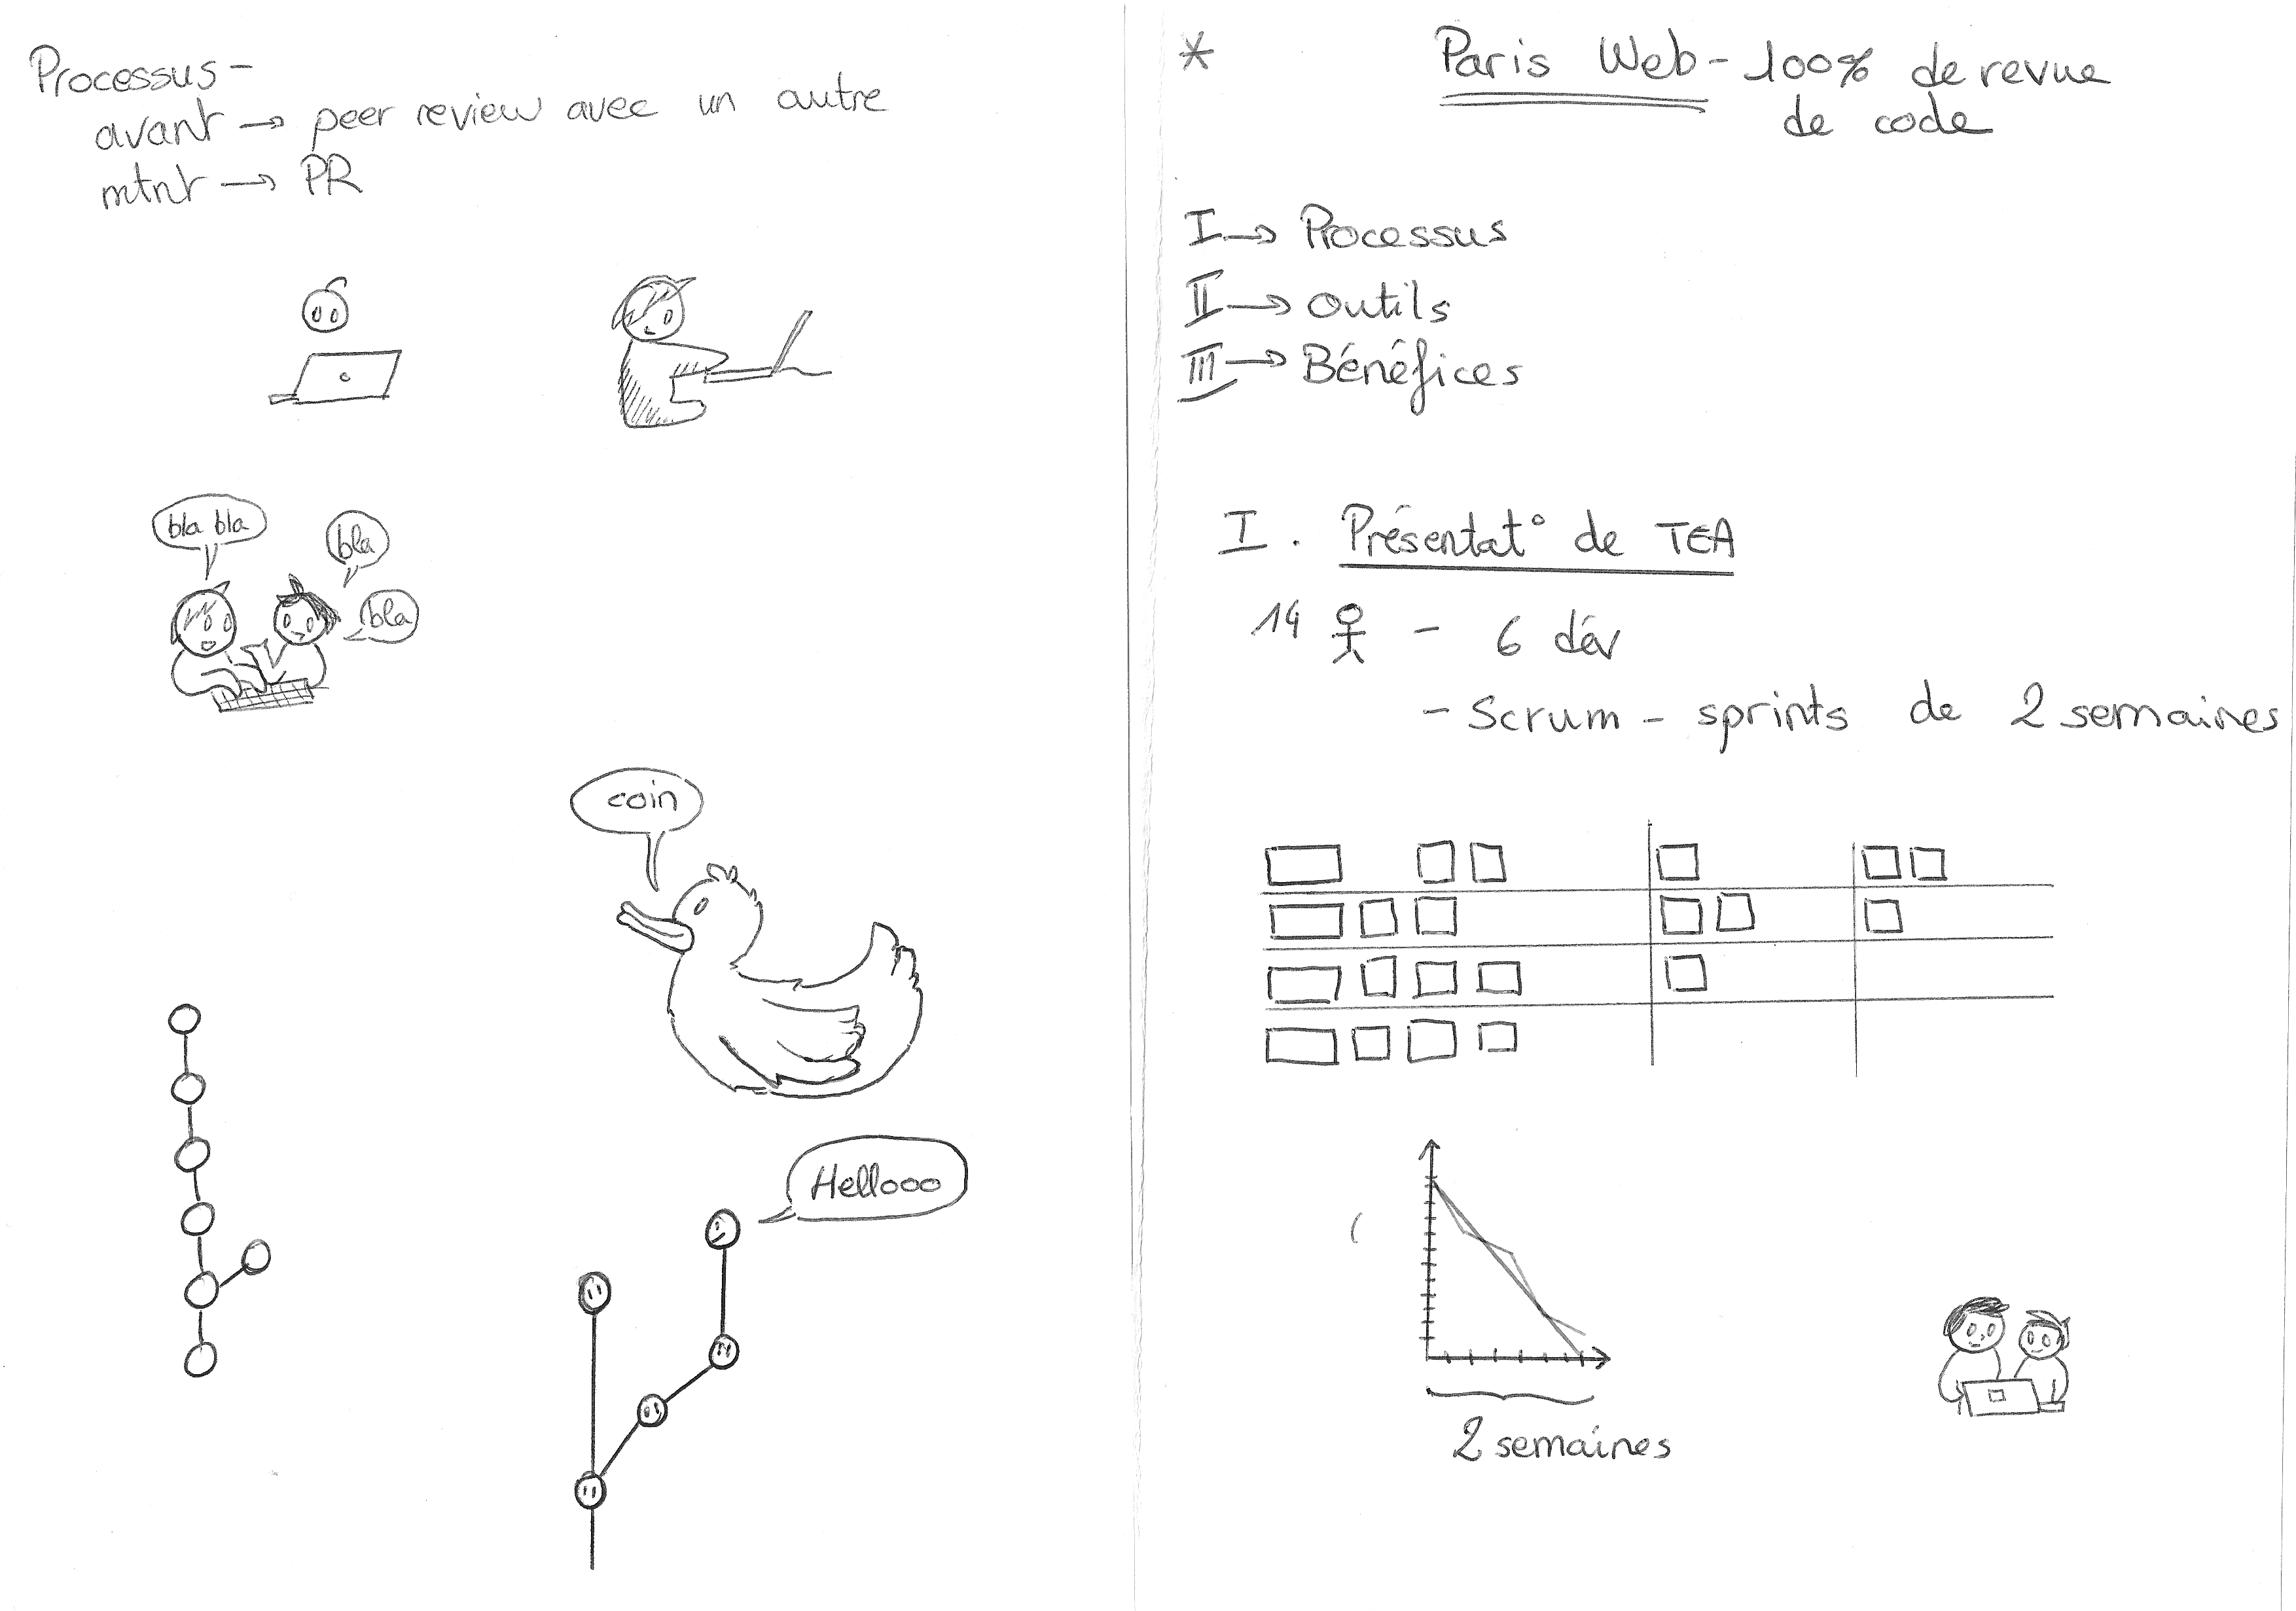 Processus -
avant → peer review avec un autre
mtnt → PR
bla bla
bla
bla
coin
Hellooo
* Paris Web - 100% de revue
de code
I → Processus
II → Outils
III → Bénéfices
I. Présentat° de TEA
14 - 6 dév
- Scrum - sprints de 2 semaines
2 semaines